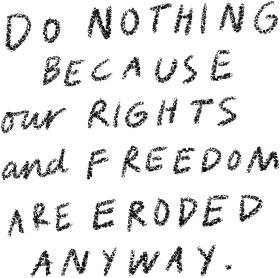 DO NOTHING
BECAUSE
our RIGHTS
and FREEDOM
ARE ERODED
ANYWAY.